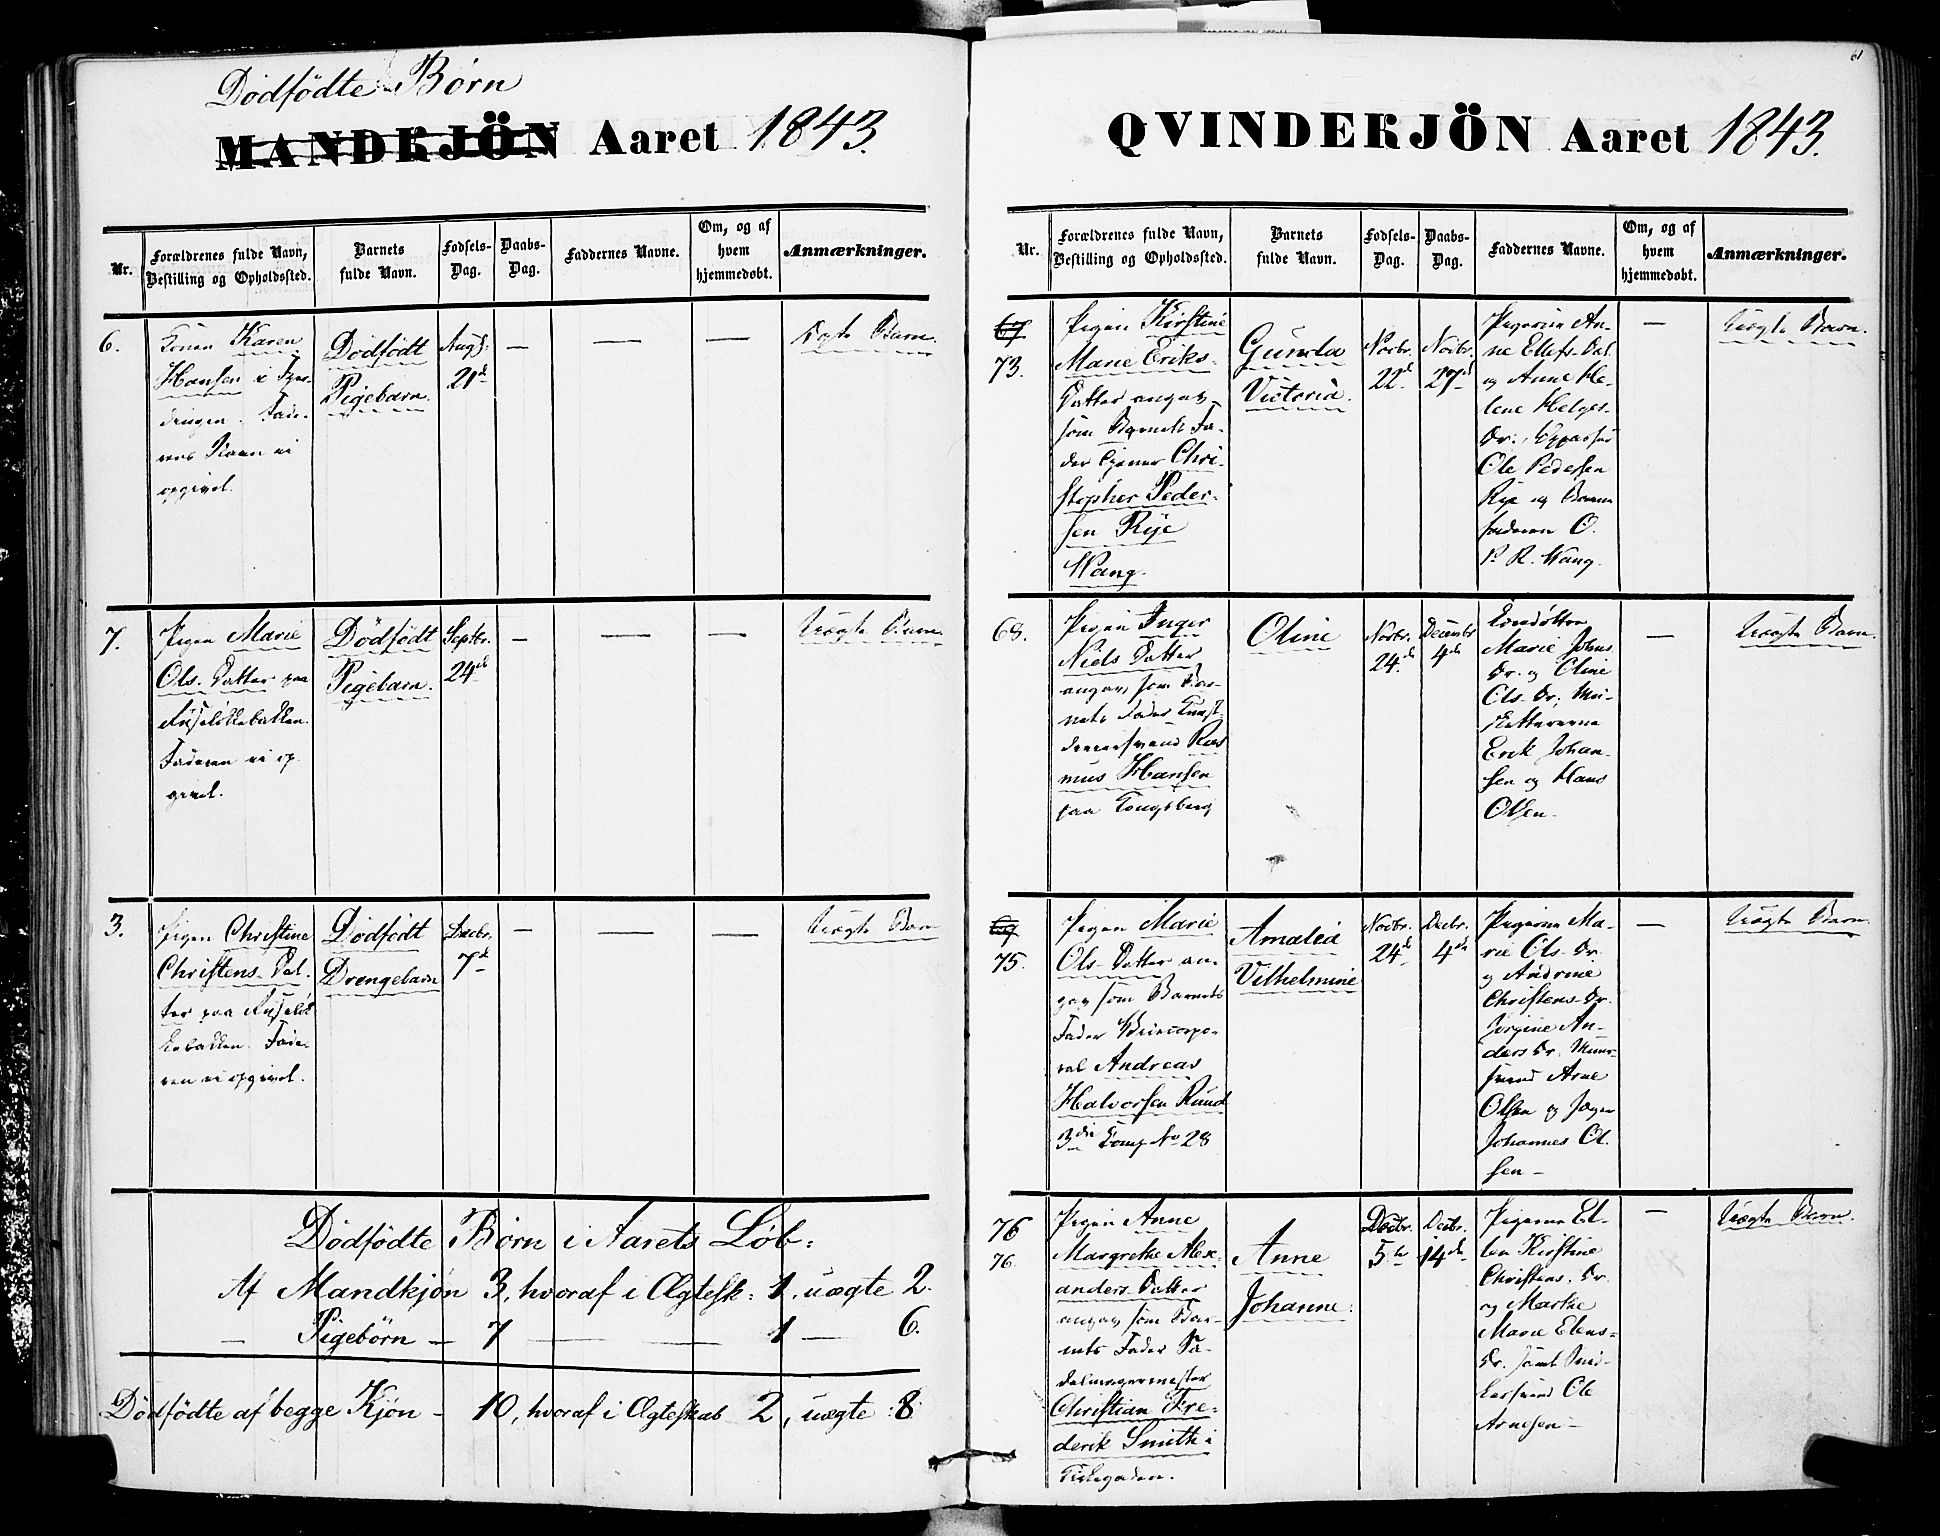 Dödfödte Børn
MANDKJÖN Aaret 1843.
Nr.
Forældrenes fulde Navn,
Bestilling og Opholdssted.
Barnets
fulde Navn.
Fødsels-
Dag.
Daabs-
Dag.
Faddernes Navne.
Om, og af
hvem
hjemmedøbt.
Anmærkninger.
6.
Konen Karen
Hansen i
Fade-
rens Navn ei
opgivet.
Dödfödt
Pigebarn.
Augs.
21d
—
—
—
Ægte Barn.
7.
Pigen Marie
Ols. Datter paa
Ruseløkbakken.
Faderen ei op-
givet.
Dödfödt
Pigebarn.
Septbr.
24de
—
—
—
Uægte Barn
3.
Pigen Christine
Christens-Dat-
ter paa Ruseløk-
bakken. Fade-
ren ei opgivet.
Dödfödt
Drengebarn
Decbr.
7d
—
—
—
Uægte Barn
Dödfödte Børn i Aarets Løb:
Af Mandkjøn 3, hvoraf i Ægtesk: 1, uægte 2.
— Pigebörn — 7 — 1 — 6.
Dödfödte af begge Kjøn — 10, hvoraf i Ægteskab 2, uægte: 8
61
QVINDEKJÖN Aaret 1843.
Nr.
Forældrenes fulde Navn,
Bestilling og Opholdssted.
Barnets
fulde Navn.
Fødsels-
Dag.
Daabs-
Dag.
Faddernes Navne.
Om, og af
hvem
hjemmedøbt.
Anmærkninger.
67
73.
Pigen Kirstine
Marie Eriks-
Datter angav
som Barnets Fa-
der Tjener Chri-
stopher Peder-
sen Rye
Wang.
Gunda
Victoria.
Novbr.
22d
Novbr.
27d
Pigerne An-
ne Ellefs-Dat.
og Anne He-
lene Helges-
Dr.,
Ole Pedersen
Rye og Barne-
faderen O.
P. R. Wang.
—
Uægte Barn.
68.
Pigen Inger
Niels Datter
angav som Bar-
nets Fader Kunst-
Ras
mus Hansen
paa Kongsberg
Oline
Novbr.
24de
Decembr
4de
Marie Johns
Dr. og Oline
Ols. Dr., Mu-
sketererne
Erik Johan-
sen og Hans
Olsen.
—
Uægte Barn.
69
75.
Pigen Marie
Ols Datter an-
gav som Barnets
Fader
Andreas
Halvorsen Ruud
3die Comp. No 28
Amalia
Vilhelmine
Novbr.
24d
Decbr.
4de
Pigerne Ma-
rie Ols. Dr.
og Andrine
Christens-Dr.
Jørgine An-
ders Dr. Muur-
svend Arne
Olsen og Jæger
Johannes Ol-
sen —
—
Uægte Barn.
76
76.
Pigen Anne
Margrethe Alex-
anders Datter
angav som Bar-
nets Fader Sa-
delmagermester
Christian Fre-
derik Smith i
Anne
Johanne.
Decbr.
5te
Decbr.
14de
Pigerne El-
len Kirstine
Christens. Dr.
og Marthe
Marie Elens-
Dr. samt
Ole
Arnesen —
—
Uægte Barn.